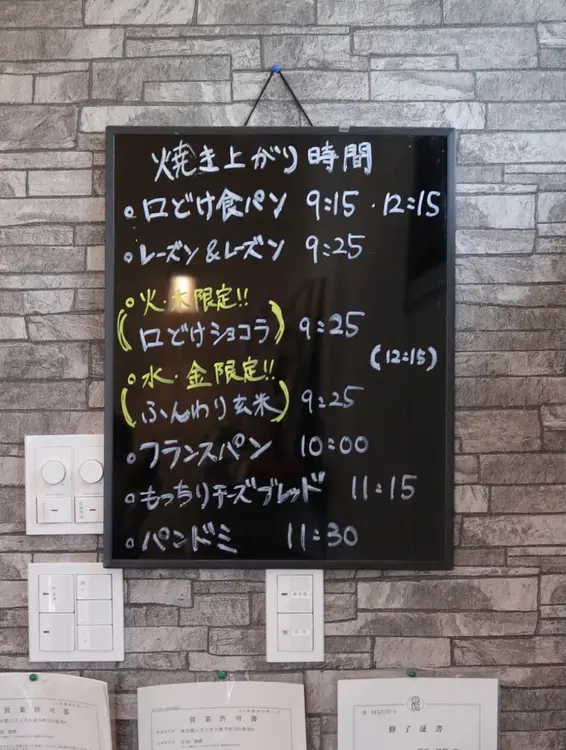 焼き上がり時間
・口どけ食パン 9:15・12:15
・レーズン&レーズン 9:25
・火・木限定!!
(口どけショコラ) 9:25
(12:15)
・水・金限定!!
(ふんわり玄米) 9:25
・フランスパン 10:00
・もっちりチーズブレッド 11:15
・パンドミ 11:30
営業許可書
営業許可書
修了証書